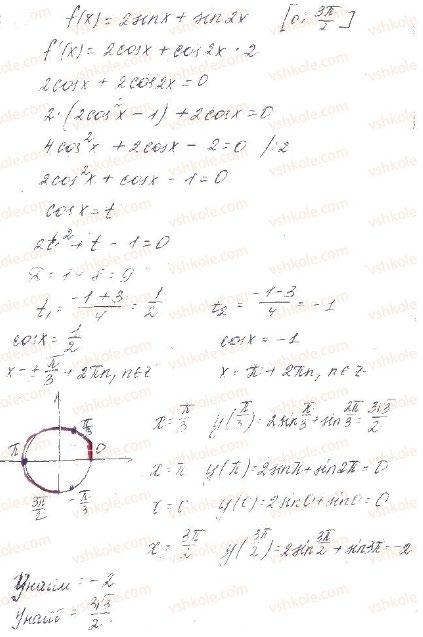 f(x) = 2sinx + sin2x [0; 3π/2]
f'(x) = 2cosx + cos2x · 2
2cosx + 2cos2x = 0
2·(2cos²x - 1) + 2cosx = 0
4cos²x + 2cosx - 2 = 0 /:2
2cos²x + cosx - 1 = 0
cosx = t
2t² + t - 1 = 0
D = 1 + 8 = 9
t₁ = (-1+3)/4 = 1/2 t₂ = (-1-3)/4 = -1
cosx = 1/2 cosx = -1
x = ± π/3 + 2πn, n∈z x = π + 2πn, n∈z
π/3
π 0
3π/2 -π/3
x = π/3 y(π/3) = 2sin π/3 + sin 2π/3 = 3√3/2
x = π y(π) = 2sinπ + sin2π = 0
x = 0 y(0) = 2sin0 + sin0 = 0
x = 3π/2 y(3π/2) = 2sin 3π/2 + sin3π = -2
Yнайм = -2
Yнайб = 3√3/2
vshkole.com